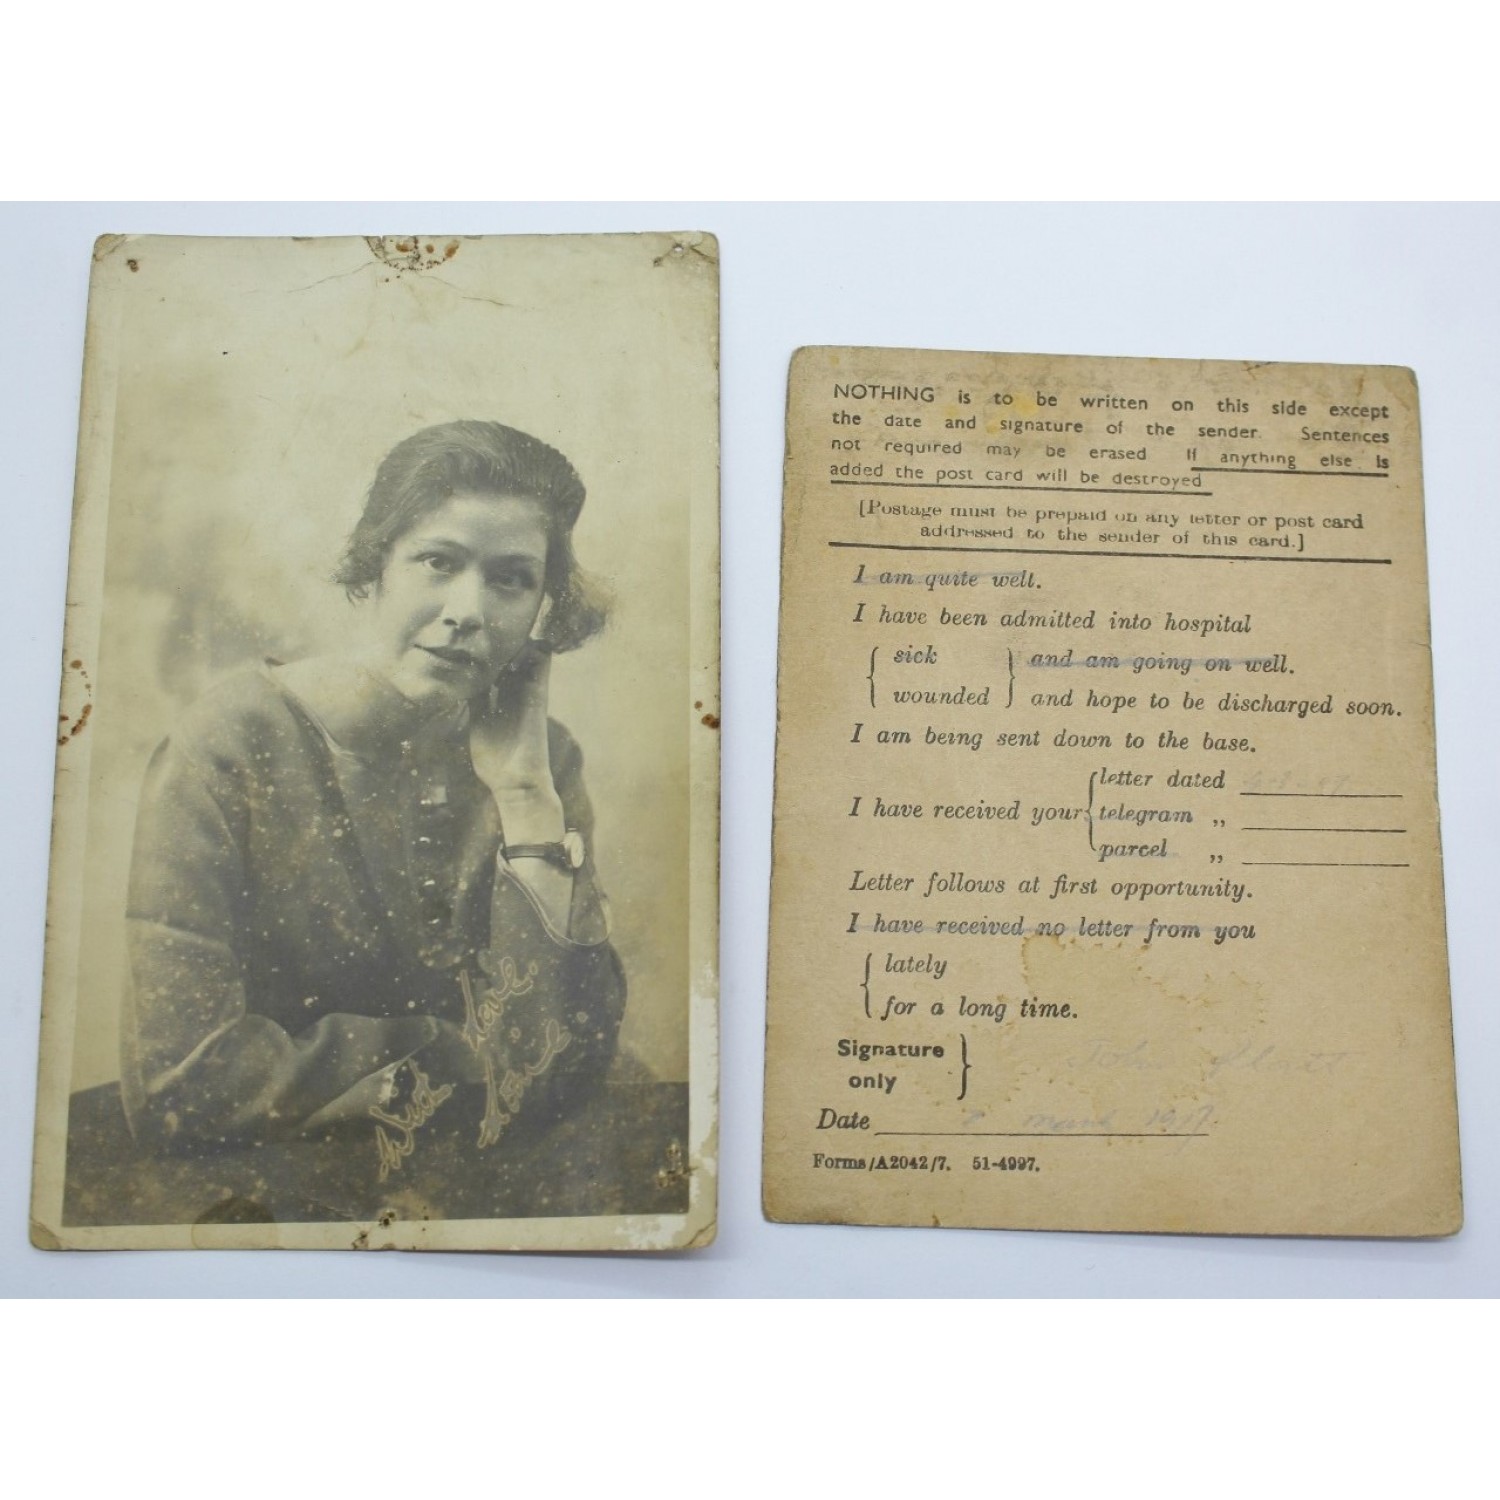 With
Love
NOTHING is to be written on this side except
the date and signature of the sender. Sentences
not required may be erased If anything else is
added the post card will be destroyed
[Postage must be prepaid on any letter or post card
addressed to the sender of this card.]
I am quite well.
I have been admitted into hospital
{ sick } and am going on well.
{ wounded } and hope to be discharged soon.
I am being sent down to the base.
{ letter dated
I have received your { telegram „
{ parcel „
Letter follows at first opportunity.
I have received no letter from you
{ lately
{ for a long time.
Signature
only }
John
Date March 1917.
Forms/A2042/7. 51-4997.